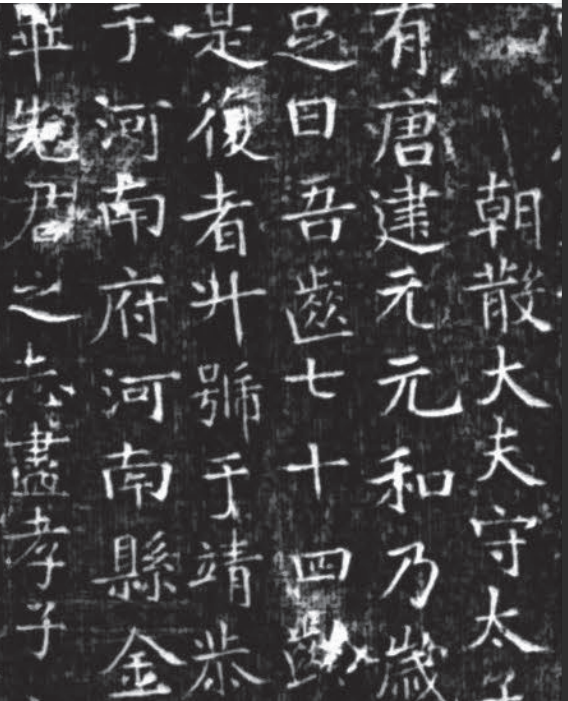 朝散大夫守太子
有唐建元元和乃歲
足曰吾齒七十四
是復者升號于靖恭
于河南府河南縣金
並先君之志盡孝子